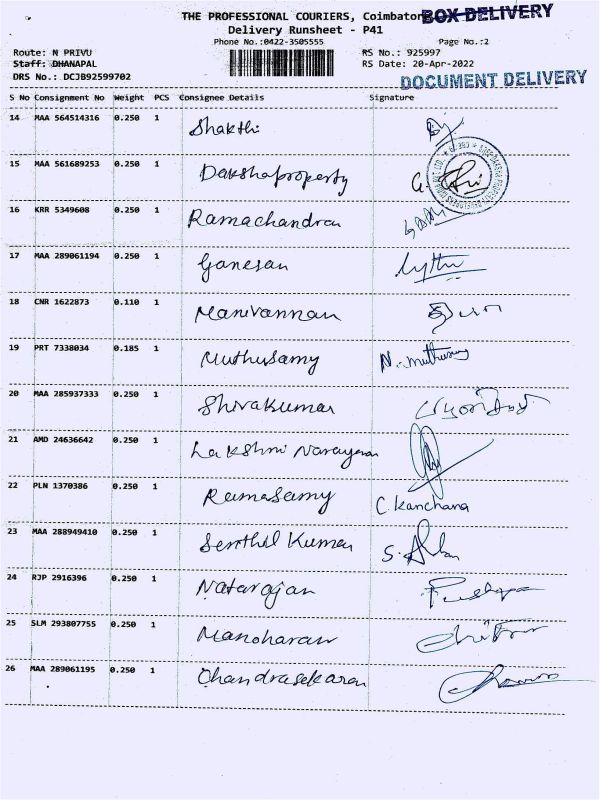 THE PROFESSIONAL COURIERS, Coimbatore
BOX DELIVERY
Delivery Runsheet - P41
Phone No.:0422-3505555 Page No.:2
Route: N PRIVU RS No.: 925997
Staff: DHANAPAL RS Date: 20-Apr-2022
DRS No.: DCJB92599702
DOCUMENT DELIVERY
S No Consignment No Weight PCS Consignee Details Signature
14 MAA 564514316 0.250 1 Shakthi
15 MAA 561689253 0.250 1 Dakshaproperty
16 KRR 5349608 0.250 1 Ramachandran
17 MAA 289061194 0.250 1 Ganesan
18 CNR 1622873 0.110 1 Manivannan
19 PRT 7338034 0.185 1 Muthusamy N. muthusamy
20 MAA 285937333 0.250 1 Shivakumar
21 AMD 24636642 0.250 1 Lakshmi Narayanan
22 PLN 1370386 0.250 1 Ramasamy C. Kanchana
23 MAA 288949410 0.250 1 Senthil Kumar
24 RJP 2916396 0.250 1 Natarajan
25 SLM 293807755 0.250 1 Manoharan
26 MAA 289061195 0.250 1 Chandrasekaran